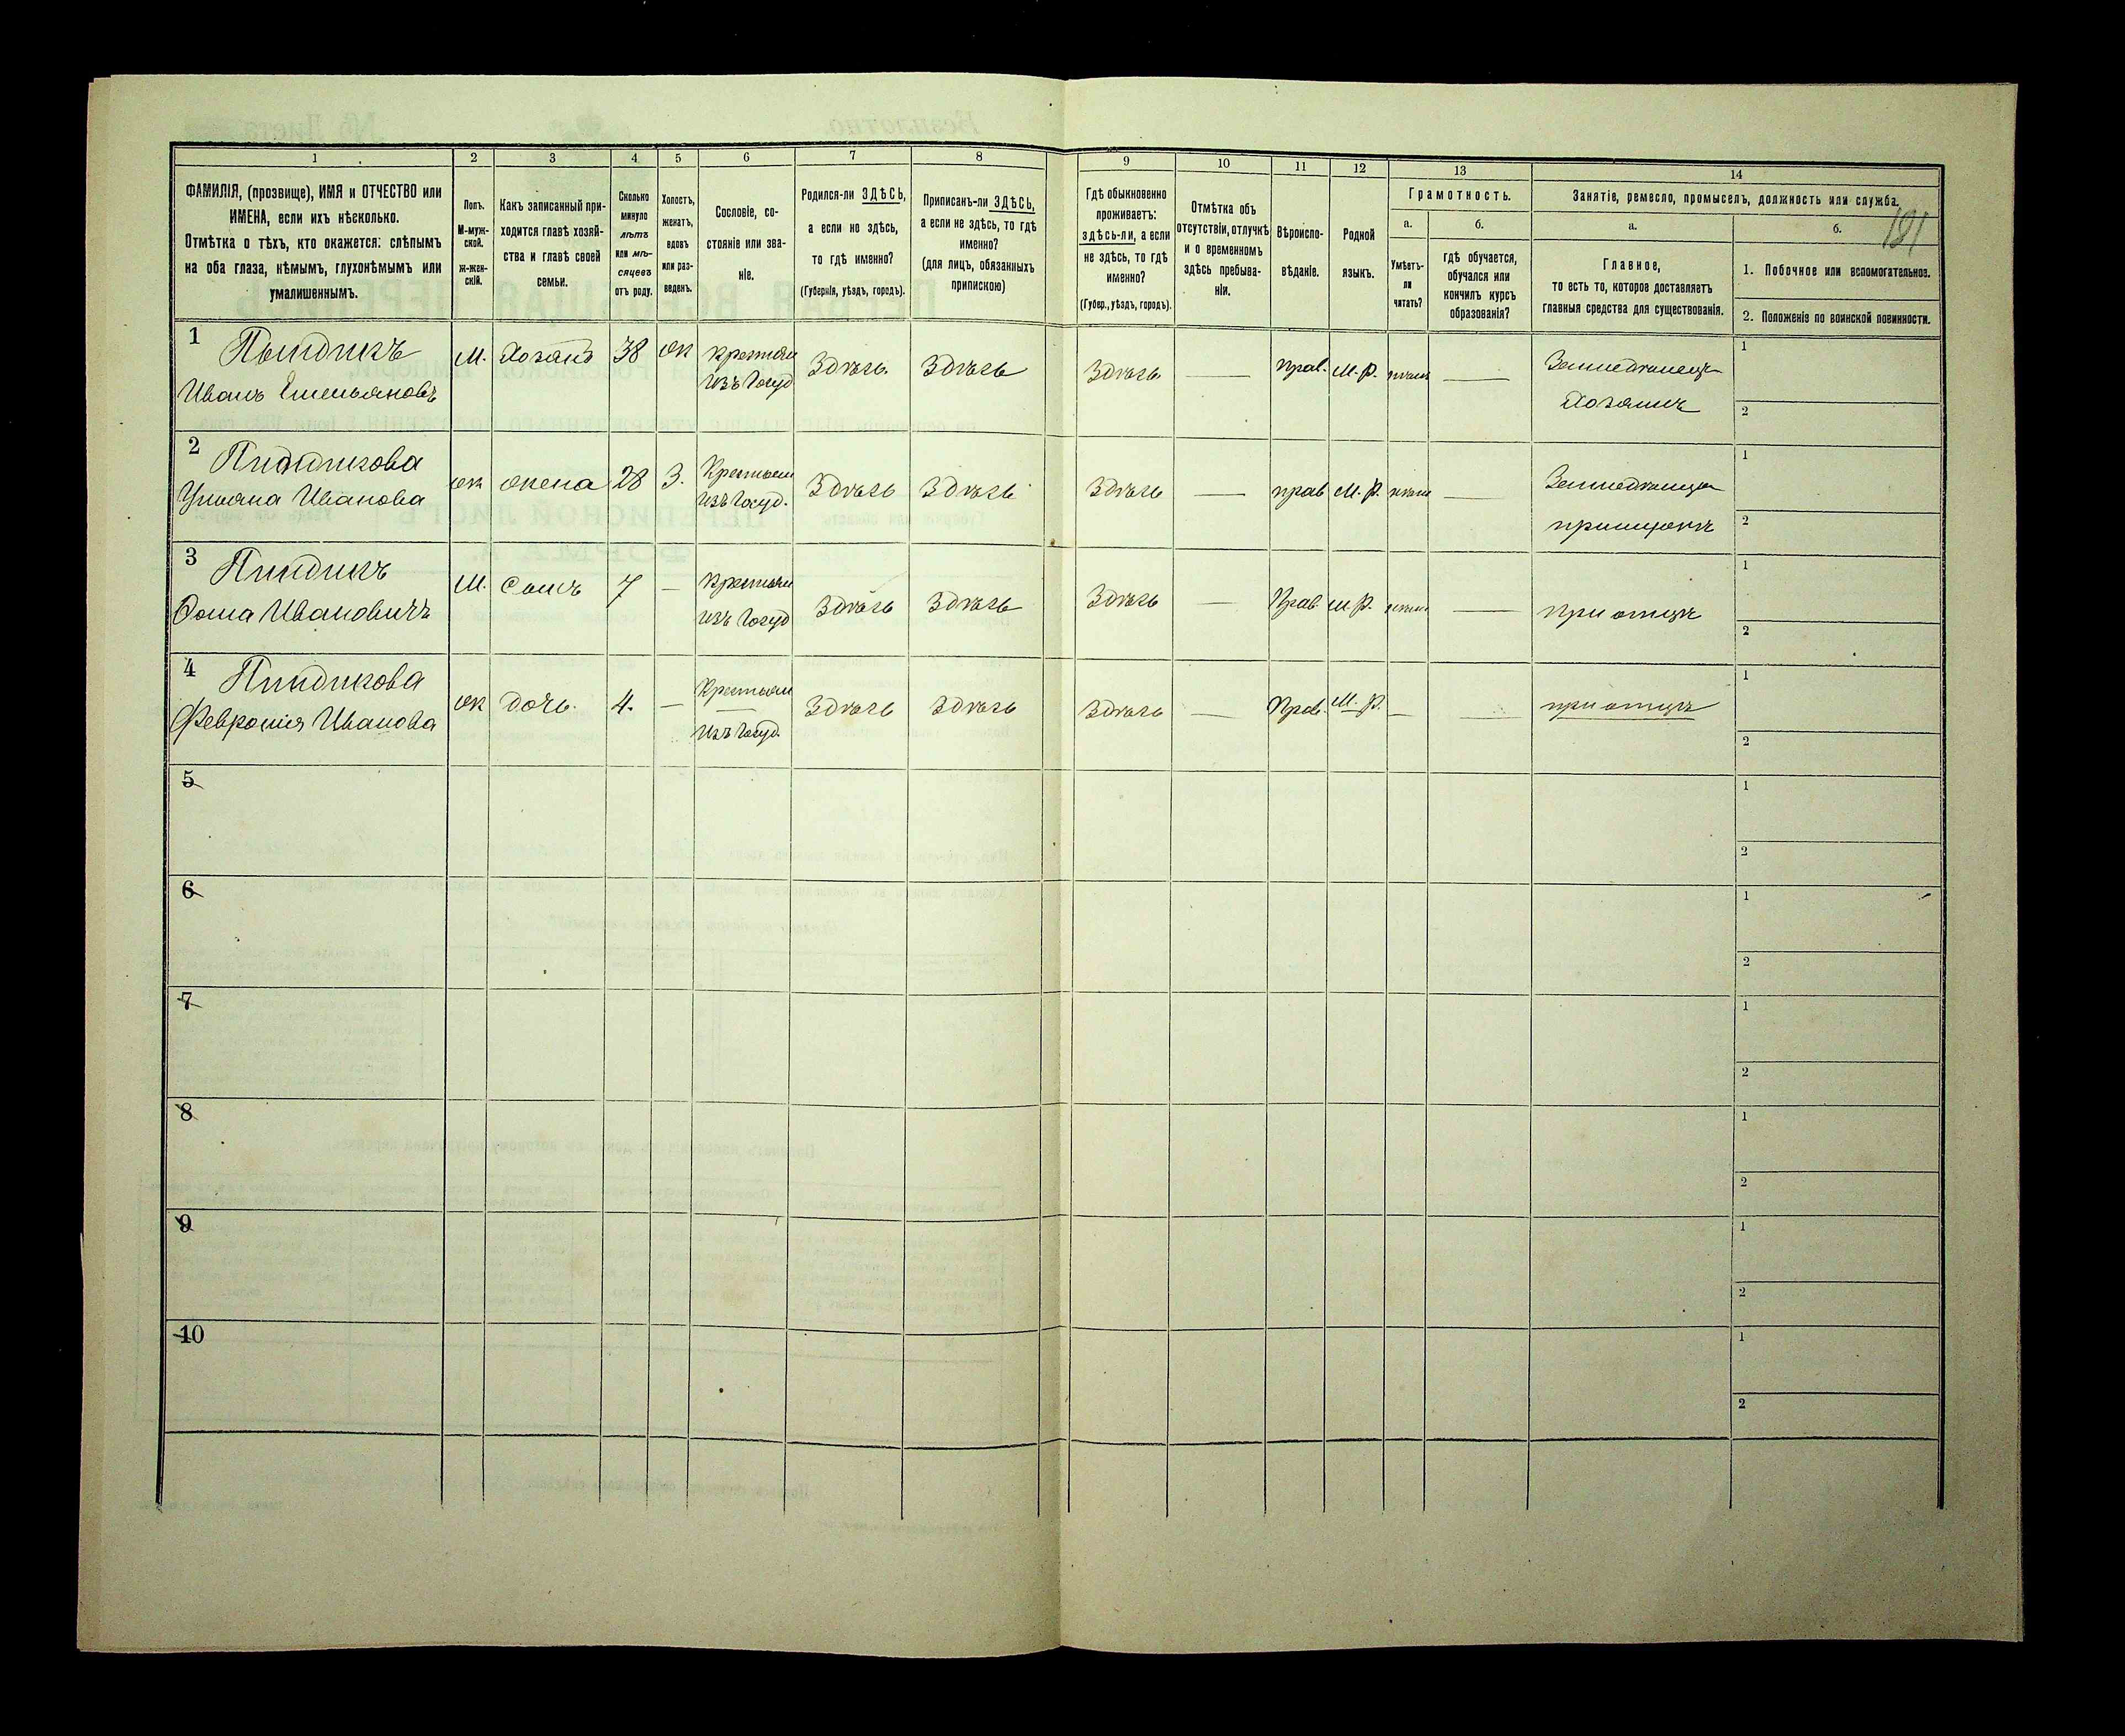 1 2 3 4 5 6 7 8 9 10 11 12 13 14
ФАМИЛІЯ, (прозвище), ИМЯ и ОТЧЕСТВО или
ИМЕНА, если ихъ нѣсколько.
Отмѣтка о тѣхъ, кто окажется: слѣпымъ
на оба глаза, нѣмымъ, глухонѣмымъ или
умалишеннымъ.
Полъ.
М-муж-
ской.
ж-жен-
скій.
Какъ записанный при-
ходится главѣ хозяй-
ства и главѣ своей
семьи.
Сколько
минуло
лѣтъ
или мѣ-
сяцевъ
отъ роду.
Холостъ,
женатъ,
вдовъ
или раз-
веденъ.
Сословіе, со-
стояніе или зва-
ніе.
Родился-ли ЗДѢСЬ,
а если не здѣсь,
то гдѣ именно?
(Губернія, уѣздъ, городъ).
Приписанъ-ли ЗДѢСЬ,
а если не здѣсь, то гдѣ
именно?
(для лицъ, обязанныхъ
припискою)
Гдѣ обыкновенно
проживаетъ:
здѣсь-ли, а если
не здѣсь, то гдѣ
именно?
(Губер., уѣздъ, городъ).
Отмѣтка объ
отсутствіи, отлучкѣ
и о временномъ
здѣсь пребыва-
ніи.
Вѣроиспо-
вѣданіе.
Родной
языкъ.
Грамотность.
а.
Умѣетъ-
ли
читать?
б.
гдѣ обучается,
обучался или
кончилъ курсъ
образованія?
Занятіе, ремесло, промыселъ, должность или служба.
а.
Главное,
то есть то, которое доставляетъ
главныя средства для существованія.
б.
191
1. Побочное или вспомогательное.
2. Положеніе по воинской повинности.
1 Пындикъ
Иванъ Емельяновъ
М. Хозяинъ 38 ж Крестьян
изъ Госуд
Здѣсь Здѣсь Здѣсь — Прав. М. р. —
Земледѣлецъ
Хозяинъ
1
2
2 Пиндикова
Ульяна Иванова
ж жена 28 З. Крестьян
изъ Госуд.
Здѣсь Здѣсь Здѣсь — прав М. р. —
Земледѣлица
1
2
3 Пиндикъ
Фома Ивановичъ
М. Сынъ 7 — Крестьян
изъ Госуд
Здѣсь Здѣсь Здѣсь — Прав. М. р. —
при отцѣ
1
2
4 Пиндикова
Февронія Иванова
ж дочь. 4. — Крестьян
изъ Госуд.
Здѣсь Здѣсь Здѣсь — Прав. М. р. — —
при отцѣ
1
2
5
1
2
6
1
2
7
1
2
8
1
2
9
1
2
10
1
2